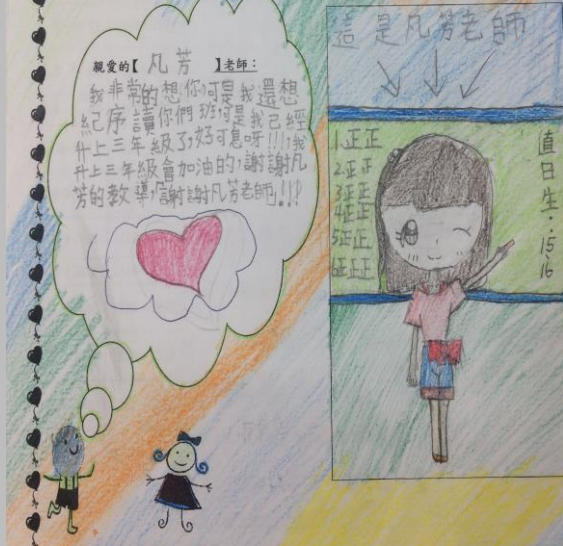 親愛的【凡芳】老師：
我非常的想你，可是我還想
紀序讀你們班，可是我己經
升上三年級了，好可息呀!!!，我
升上三年級會加油的，謝謝凡
芳的教導，謝謝凡芳老師!!!
這是凡芳老師
1.正正
2.正正
3.正正
4.正正
5.正正
6.正正
值日生：15、16